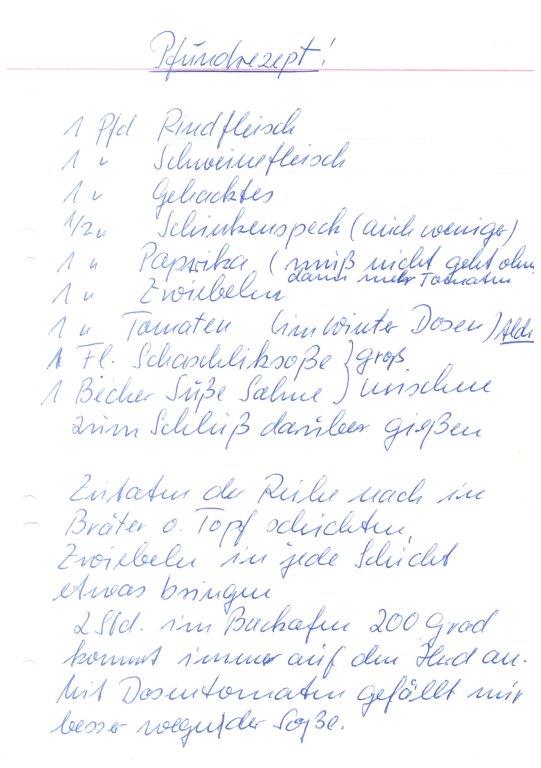 Pfundrezept!
1 Pfd Rindfleisch
1 " Schweinefleisch
1 " Gehacktes
1/2 " Schinkenspeck (auch weniger)
1 " Paprika (muß nicht geht ohne
dann mehr Tomaten
1 " Zwiebeln
1 " Tomaten (im Winter Dosen) Aldi
1 Fl. Schaschliksoße } groß
1 Becher Süße Sahne } mischen
zum Schluß darüber gießen
Zutaten der Reihe nach in
Bräter o. Topf schichten,
Zwiebeln in jede Schicht
etwas bringen
2 Std. im Backofen 200 Grad
kommt immer auf den Herd an.
Mit Dosentomaten gefällt mir
besser wegen der Soße.